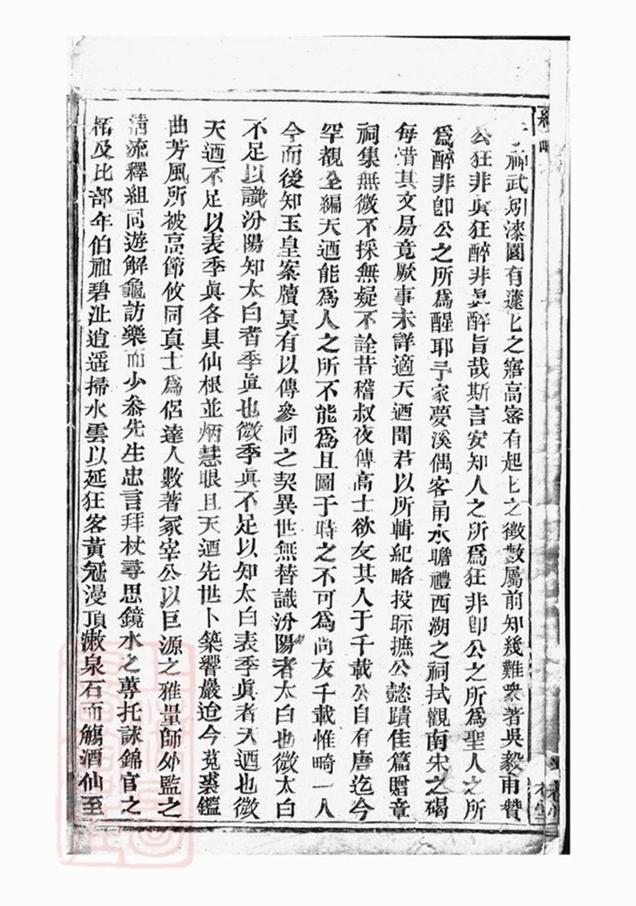 神武剜漆園有蘧匕之寤高密有起匕之徵數屬前知幾難衆著吳毅甫贊
公狂非眞狂醉非眞醉旨哉斯言安知人之所爲狂非卽公之所爲聖人之所
爲醉非卽公之所爲醒耶予家夢溪偶客甬水瞻禮西湖之祠拭觀南宋之碣
每惜其文易竟厥事未詳適天迺聞君以所輯紀略投眎摭公懿蹟佳篇贈章
祠集無微不採無疑不詮昔稽叔夜傳高士欲友其人于千載公自有唐迄今
罕覩全編天迺能爲人之所不能爲且圖于時之不可爲尚友千載惟畸一人
今而後知玉皇案牘冥有以傳參同之契異世無替識汾陽者太白也微太白
不足以識汾陽知太白者季眞也微季眞不足以知太白表季眞者天迺也微
天迺不足以表季眞各具仙根並炳慧眼且天迺先世卜築響巖迨今菟裘鑑
曲芳風所被高節攸同真士爲侶達人數著冢宰公以巨源之雅量師外監之
清流釋組同遊解龜訪樂而少叅先生忠言拜杖尋思鏡水之蓴托詠錦官之
栢及比部年伯祖碧沚逍遥掃水雲以延狂客黃冠漫頂漱泉石而觴酒仙至